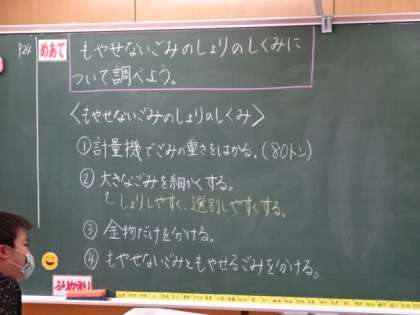 めあて
もやせないごみのしょりのしくみに
ついて調べよう。
〈もやせないごみのしょりのしくみ〉
①計量機でごみの重さをはかる。(80トン)
②大きなごみを細かくする。
しょりしやすく、選別しやすくする。
③金物だけを分ける。
④もやせないごみともやせるごみを分ける。
ふりかえり